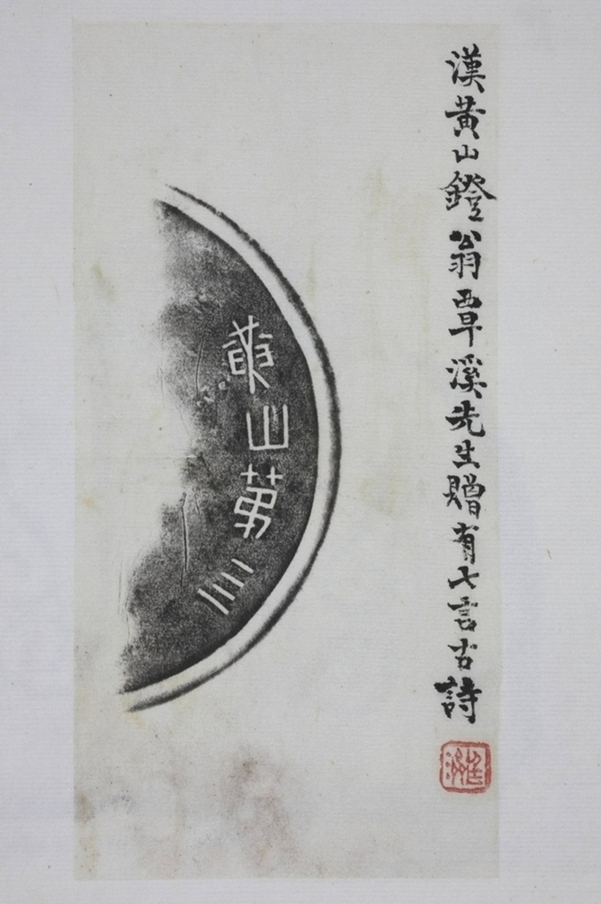 漢黃山鐙翁覃溪先生贈有七言古詩
廷濟
黃山第三